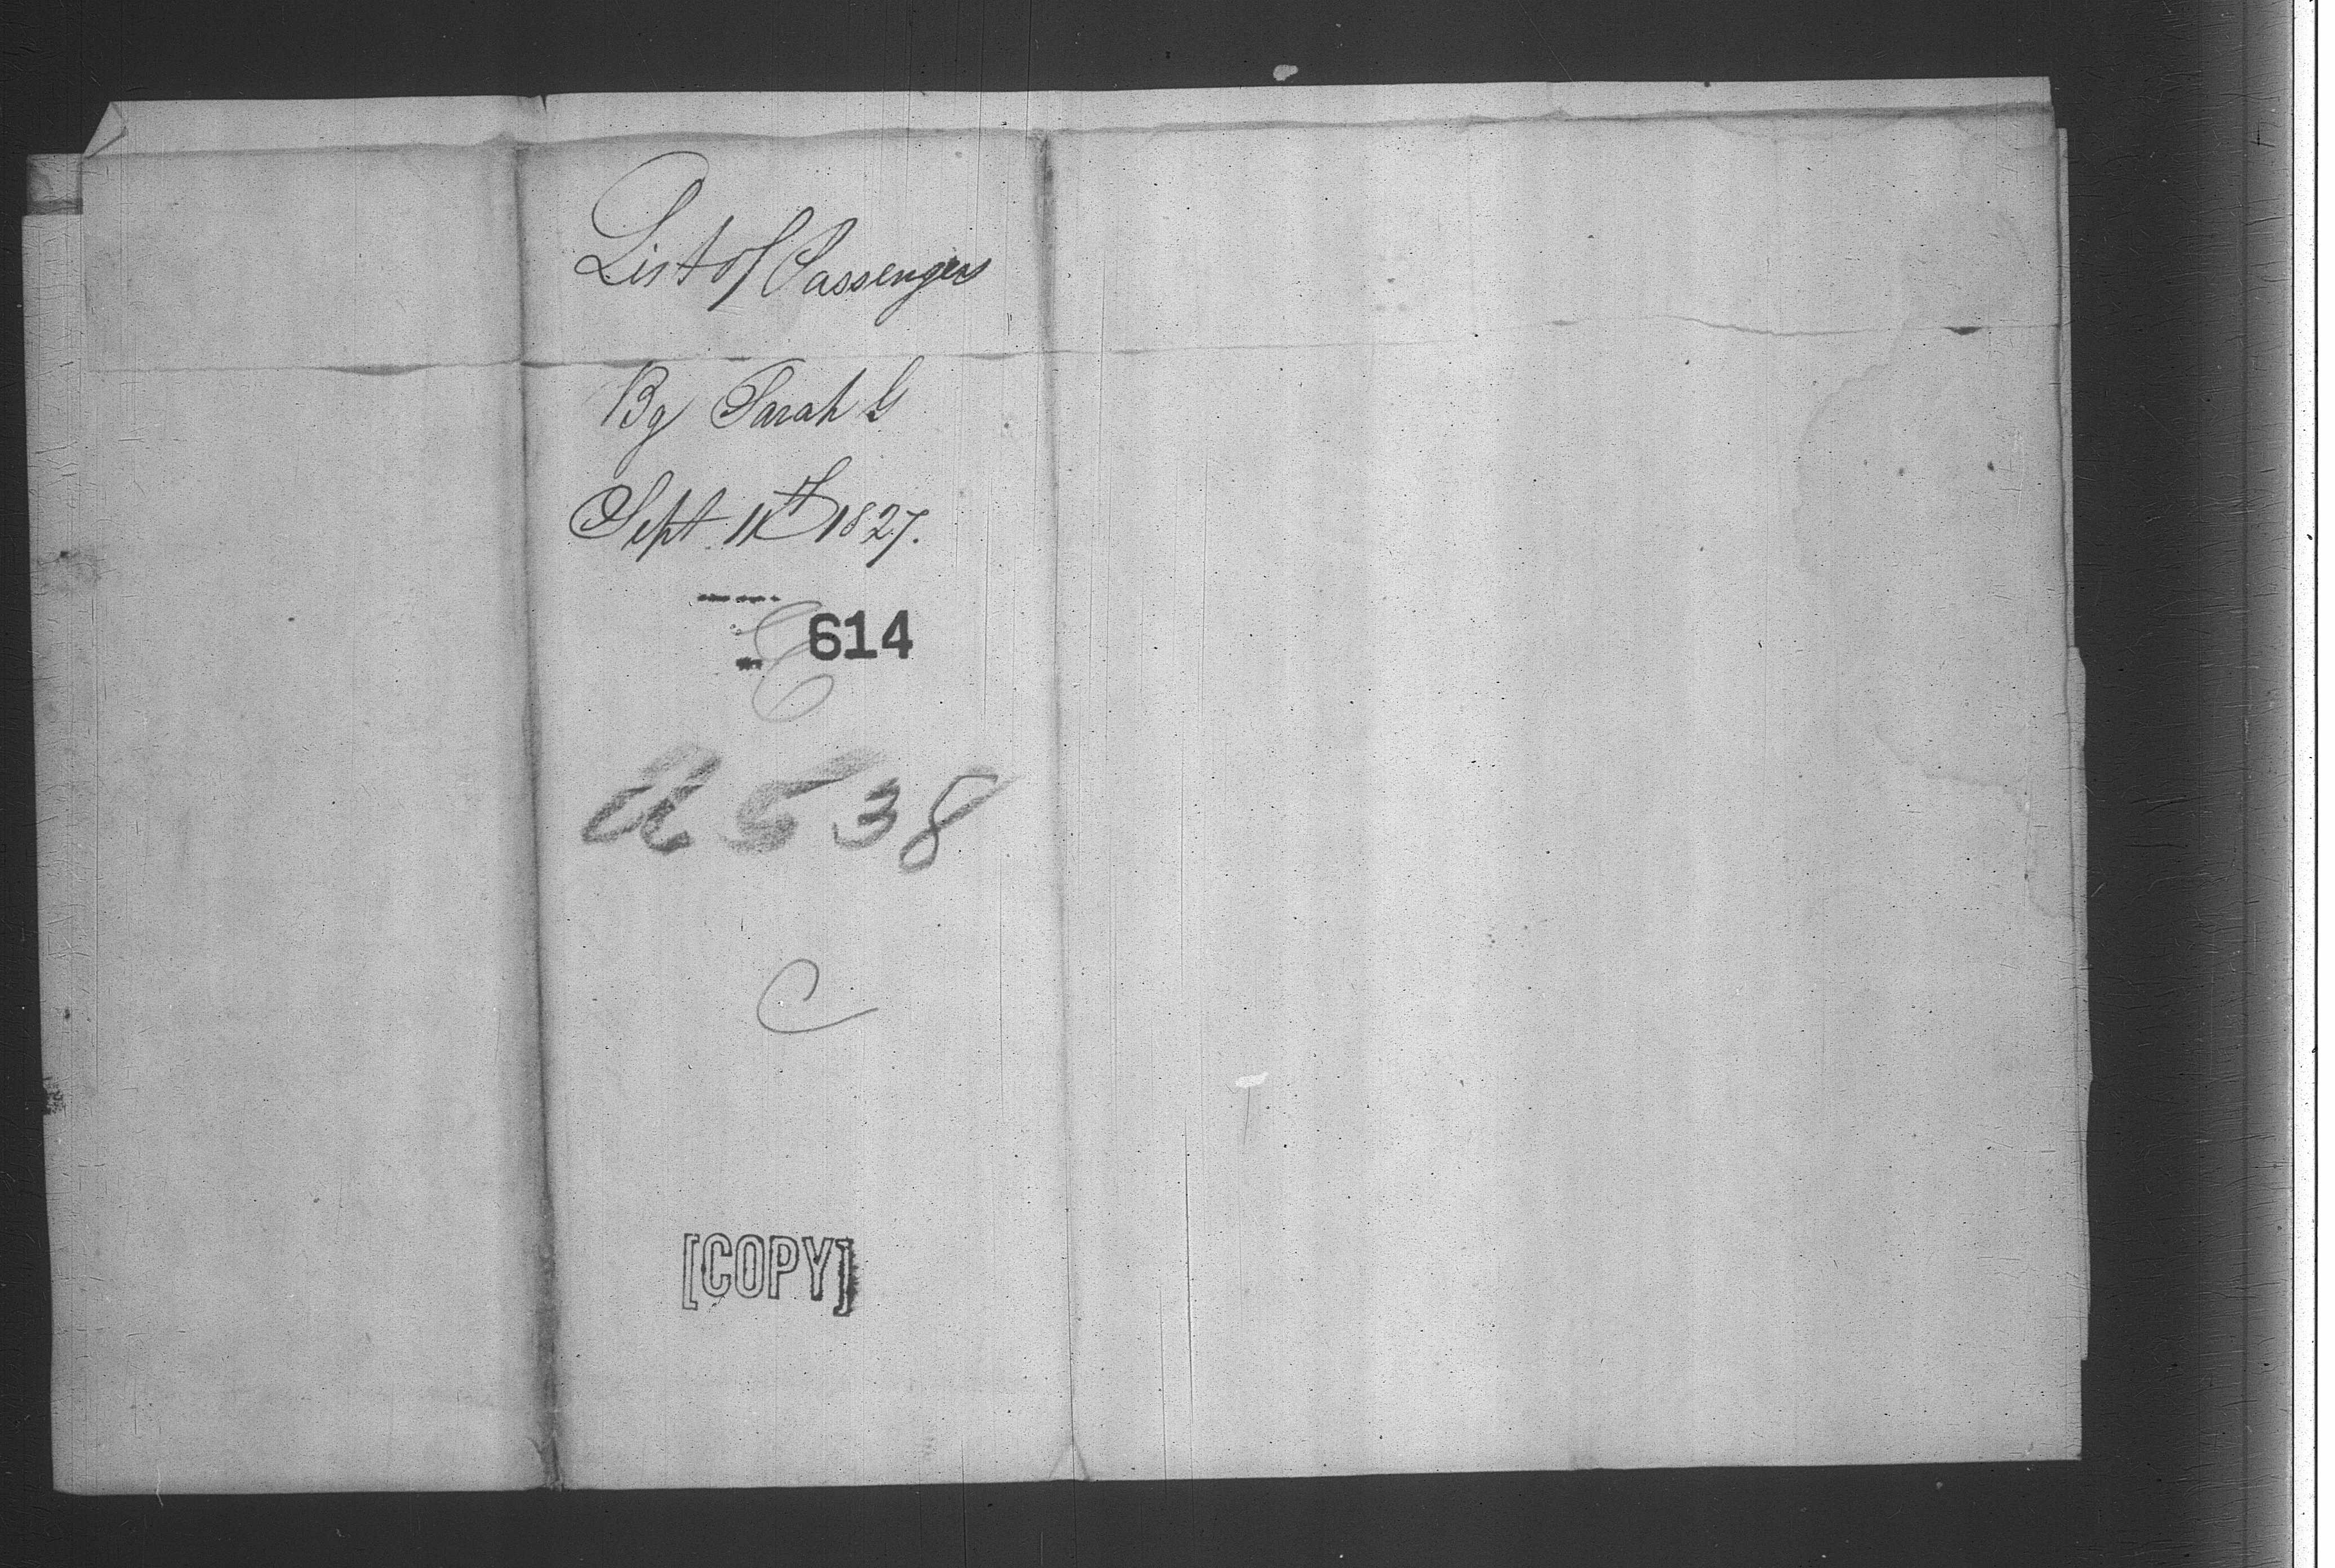 List of Passengers
Bg Sarah G
Sept 11th 1827.
614
538
C
[COPY]